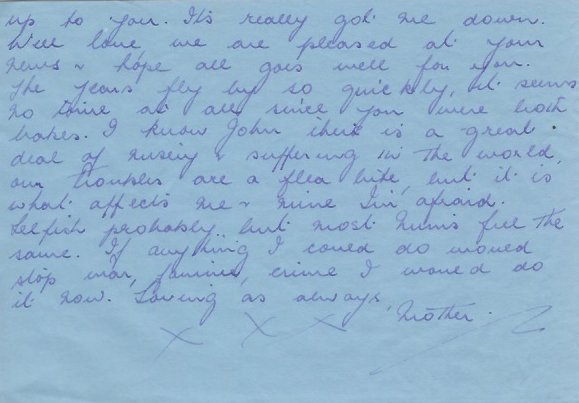 up to you. It's really got me down.
Well love, we are pleased at your
news & hope all goes well for you.
The years fly by so quickly, it seems
no time at all since you were both
babes. I know John there is a great
deal of misery & suffering in the world,
our troubles are a flea bite, but it is
what affects me & mine I'm afraid.
Selfish probably but most Mums feel the
same. If anything I could do would
stop war, famine, crime I would do
it now. Loving as always,
Mother.
X X X